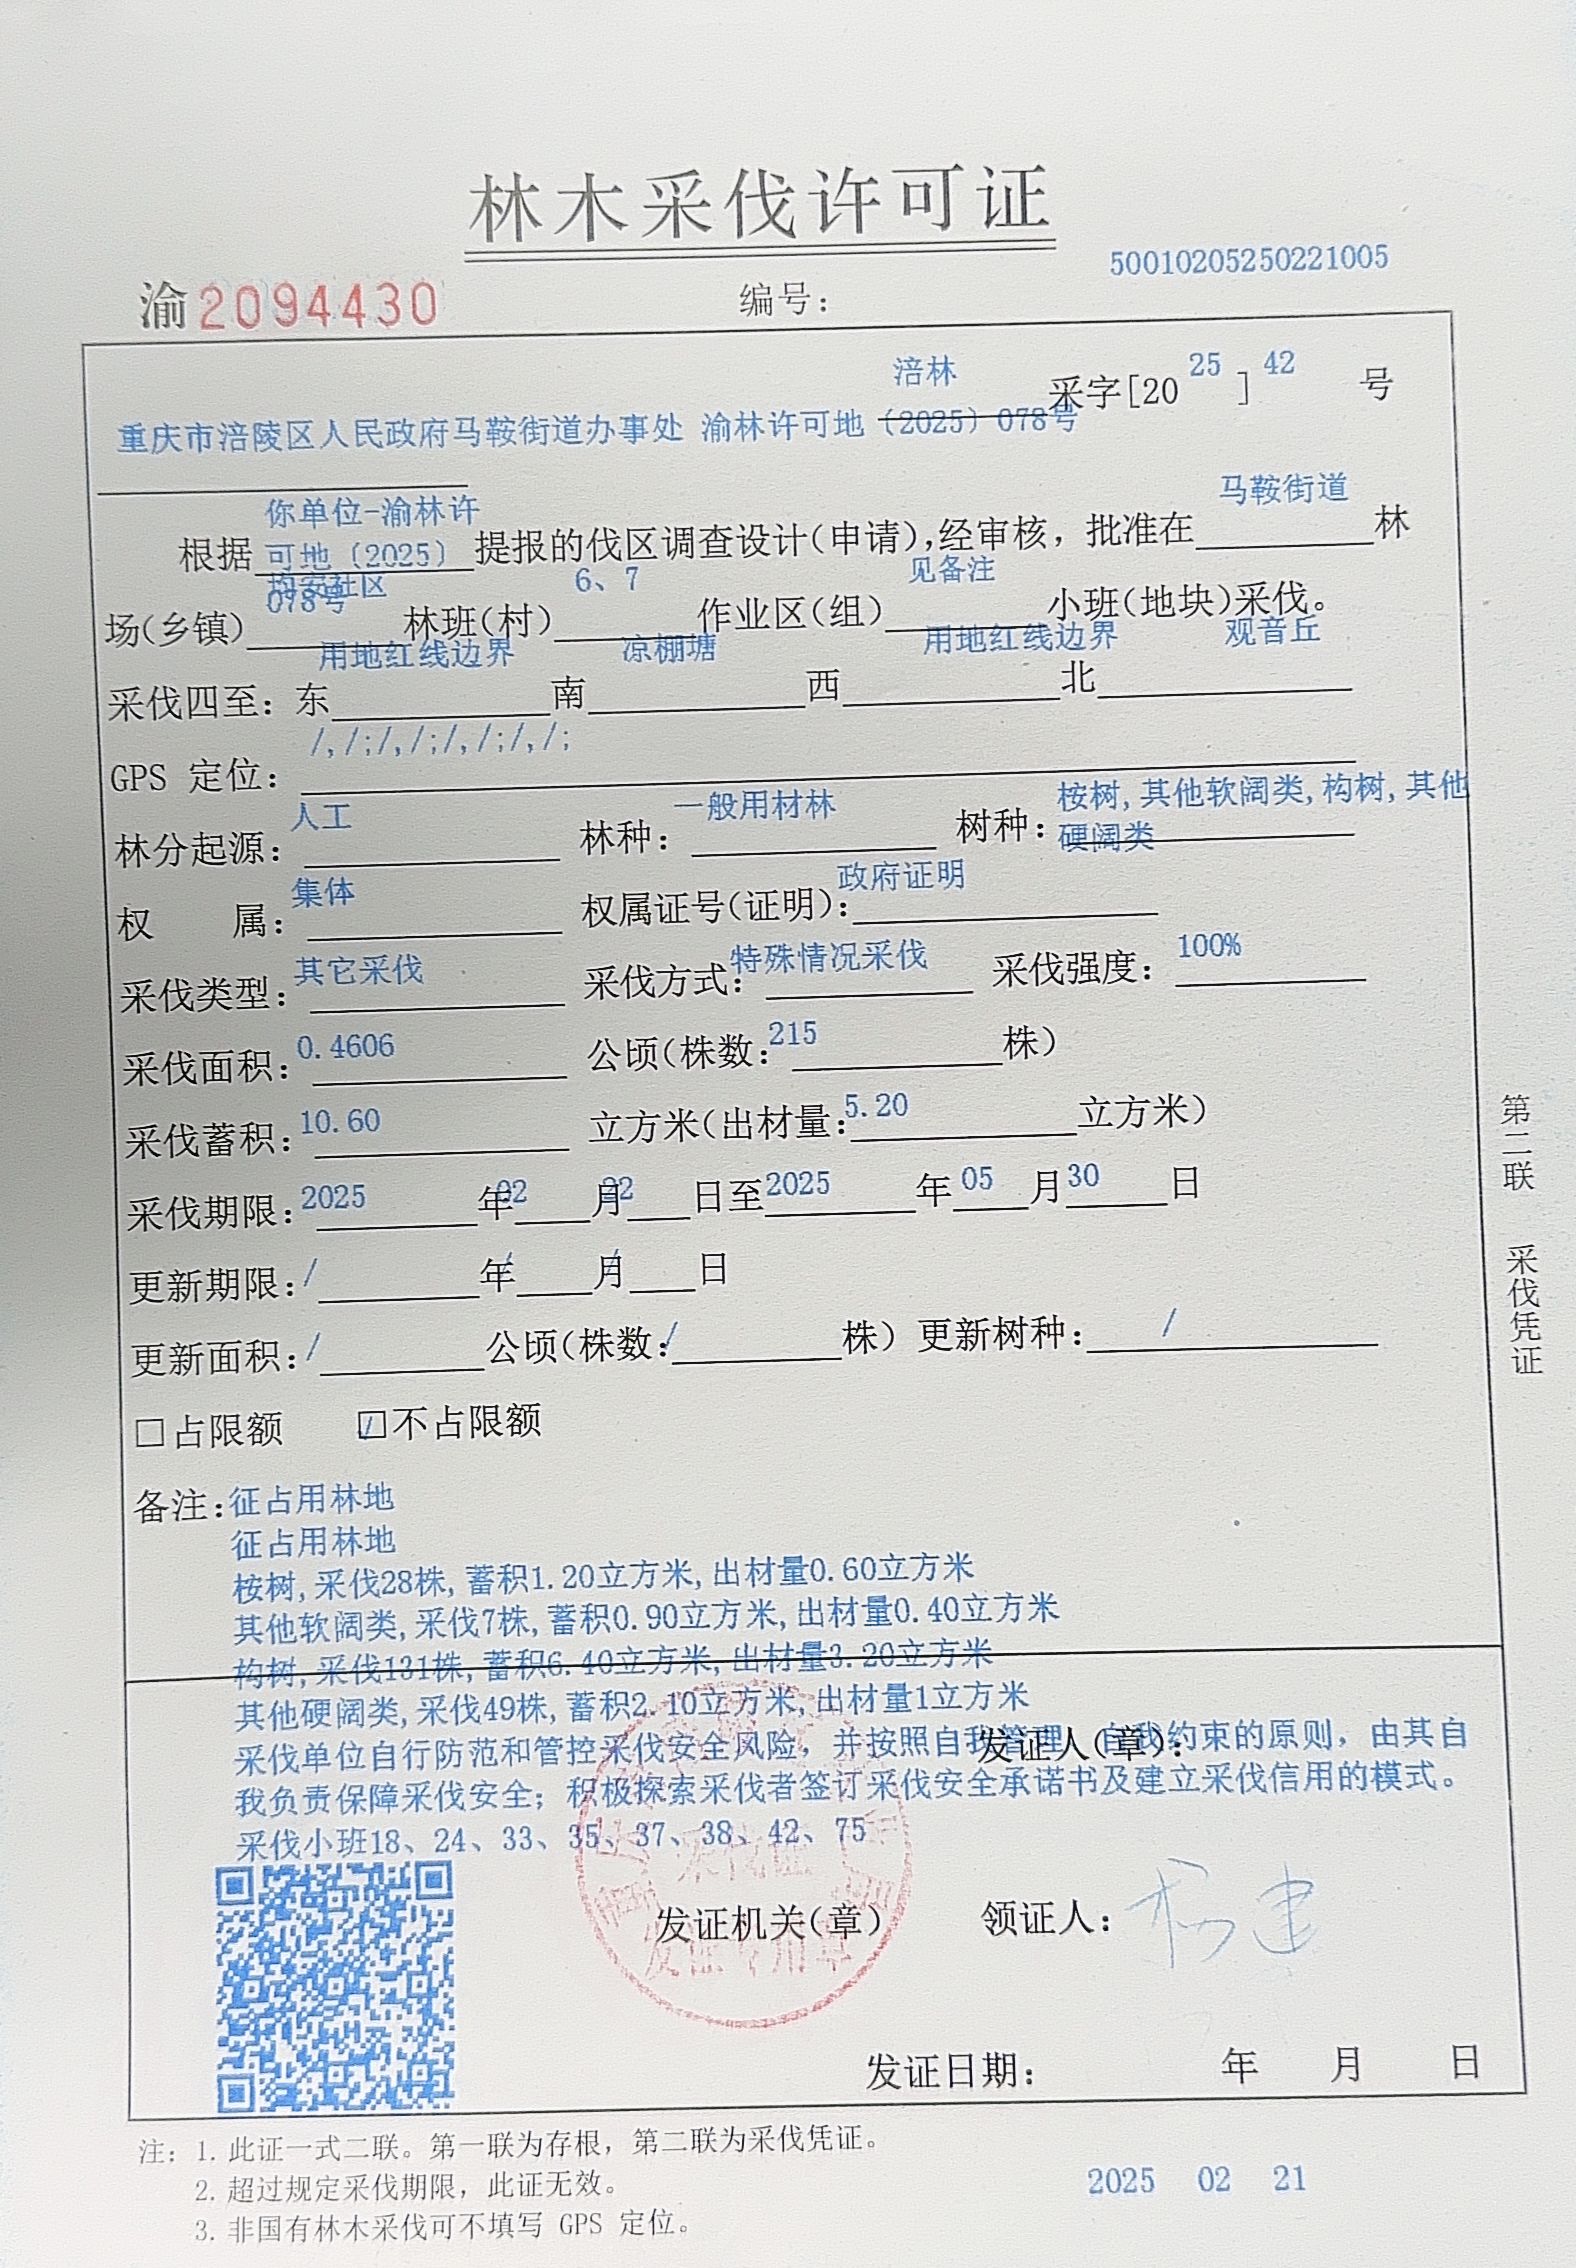 林木采伐许可证
50010205250221005
渝2094430 编号：
涪林采字[2025]42号
重庆市涪陵区人民政府马鞍街道办事处 渝林许可地〔2025〕078号
根据你单位-渝林许可地〔2025〕078号提报的伐区调查设计(申请),经审核，批准在马鞍街道林
场(乡镇)均安社区林班(村)6、7作业区(组)见备注小班(地块)采伐。
采伐四至：东用地红线边界南凉棚塘西用地红线边界北观音丘
GPS 定位：/,/;/,/;/,/;/,/;
林分起源：人工 林种：一般用材林 树种：桉树,其他软阔类,构树,其他硬阔类
权 属：集体 权属证号(证明)：政府证明
采伐类型：其它采伐 采伐方式：特殊情况采伐 采伐强度：100%
采伐面积：0.4606公顷(株数：215株)
采伐蓄积：10.60立方米(出材量：5.20立方米)
采伐期限：2025年02月22日至2025年05月30日
更新期限：/年/月/日
更新面积：/公顷(株数：/株) 更新树种：/
□占限额 ☑不占限额
备注：征占用林地
征占用林地
桉树,采伐28株,蓄积1.20立方米,出材量0.60立方米
其他软阔类,采伐7株,蓄积0.90立方米,出材量0.40立方米
构树,采伐131株,蓄积6.40立方米,出材量3.20立方米
其他硬阔类,采伐49株,蓄积2.10立方米,出材量1立方米
采伐单位自行防范和管控采伐安全风险，并按照自我管理、自我约束的原则，由其自
我负责保障采伐安全；积极探索采伐者签订采伐安全承诺书及建立采伐信用的模式。
采伐小班18、24、33、35、37、38、42、75
发证人(章)：
采伐证
发证专用章
发证机关(章) 领证人：
发证日期： 年 月 日
2025 02 21
注：1. 此证一式二联。第一联为存根，第二联为采伐凭证。
2. 超过规定采伐期限，此证无效。
3. 非国有林木采伐可不填写 GPS 定位。
第二联 采伐凭证